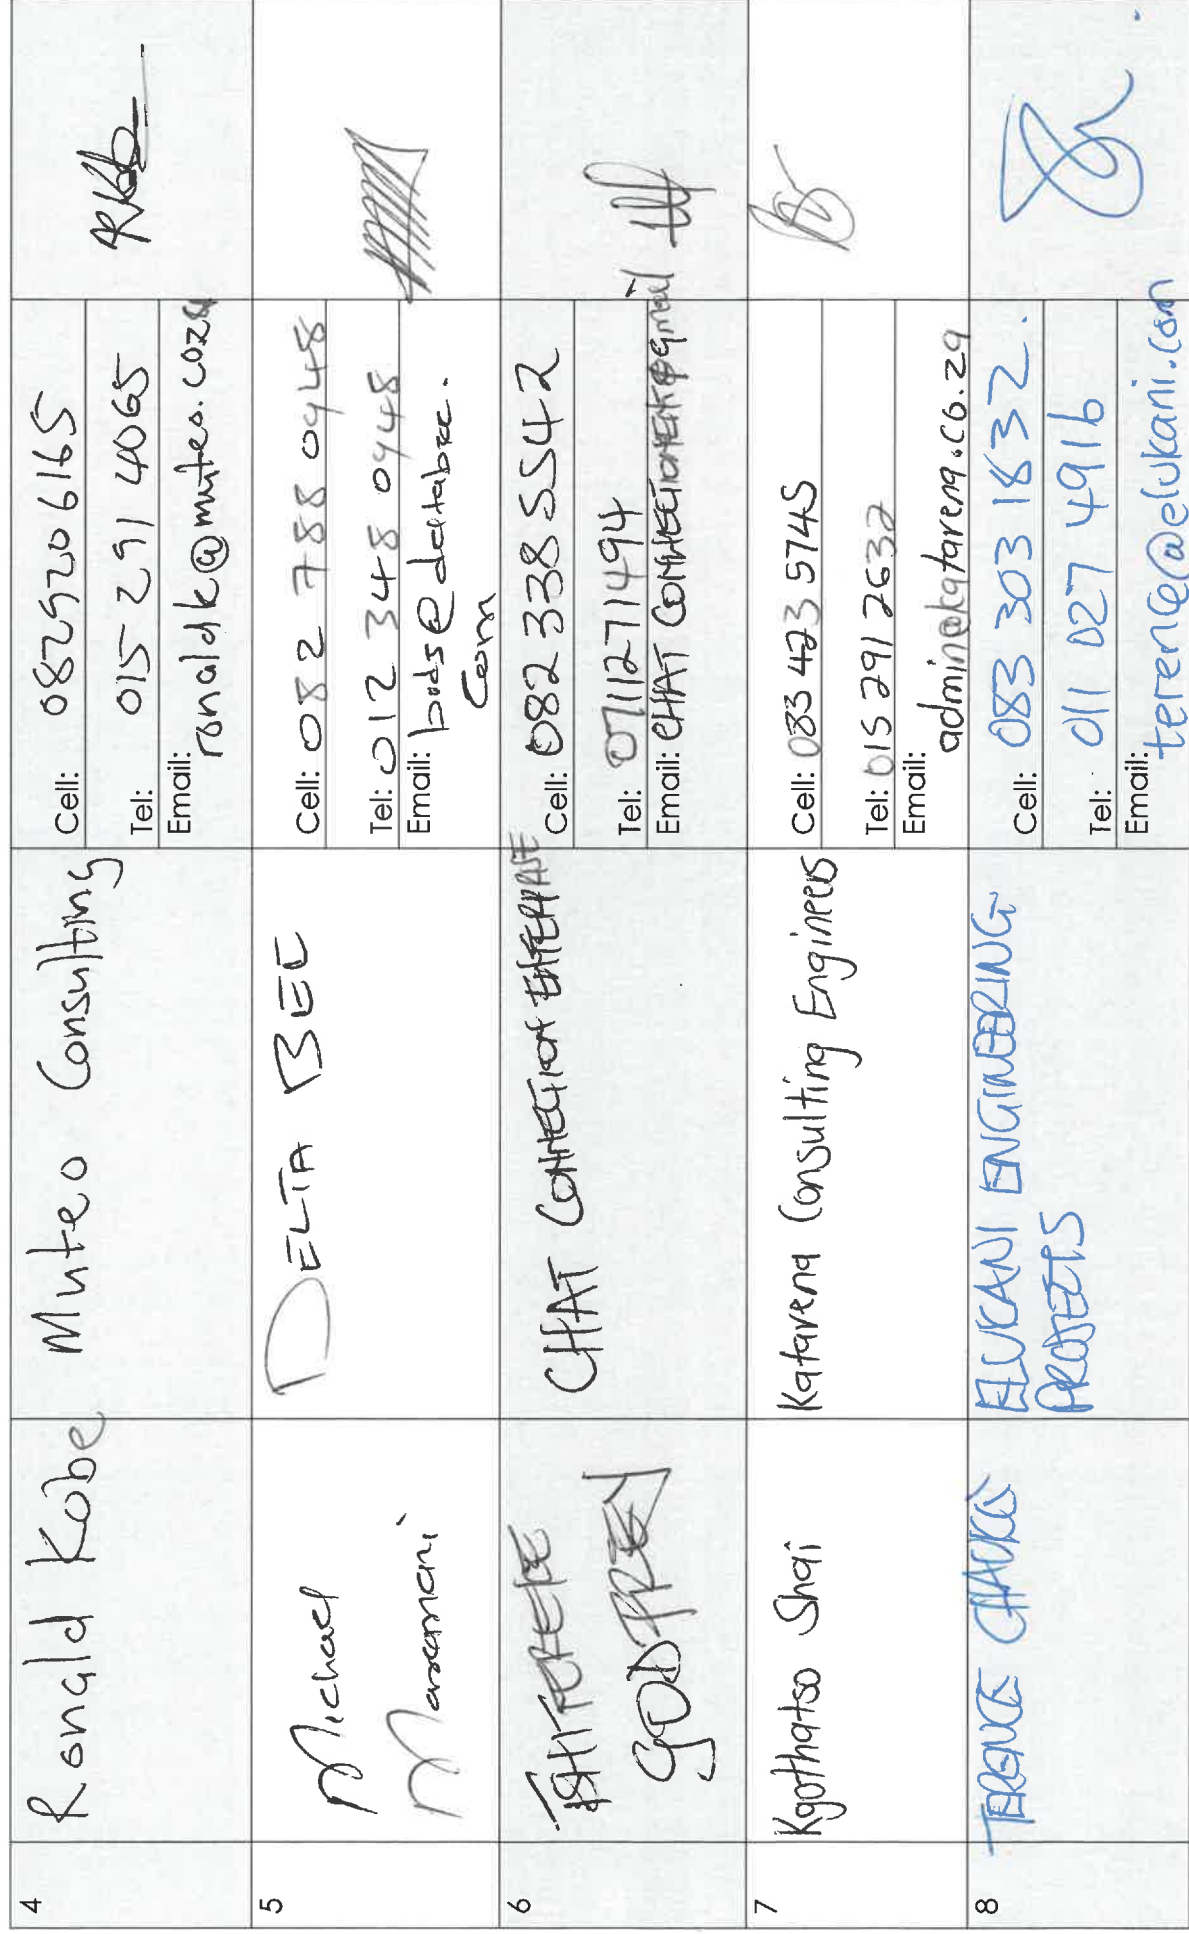 4
Ronald Kobe
Muteo Consulting
Cell: 0829206165
Tel: 015 291 4065
Email: ronaldk@muteo.coza
5
Michael
Maramani
DELTA BEE
Cell: 082 788 0948
Tel: 012 348 0948
Email: bods@deltabee.
com
6
GODFREY
CHAT CONNECTION ENTERPRISE
Cell: 082 338 5542
Tel: 0711271494
Email: CHAT CONNECTIONENT@gmail
7
Kgothatso Shai
Katavena Consulting Engineers
Cell: 083 423 5745
Tel: 015 291 2632
Email:
admin@katavena.co.za
8
TERENCE CHAUKE
ELUKANI ENGINEERING
PROJECTS
Cell: 083 303 1832.
Tel: 011 027 4916
Email:
terence@elukani.com